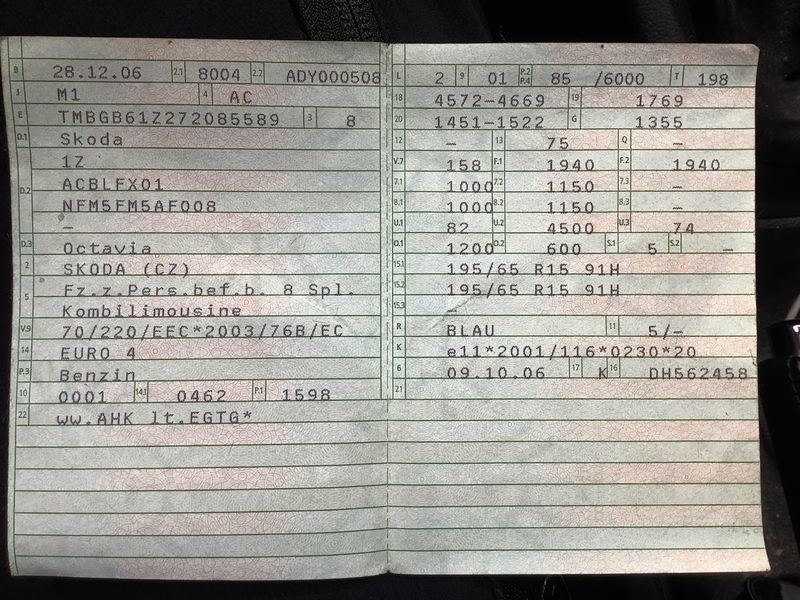 B 28.12.06 2.1 8004 2.2 ADY000508
J M1 4 AC
E TMBGB61Z272085589 3 8
D.1 Skoda
D.2 1Z
ACBLFX01
NFM5FM5AF008
—
D.3 Octavia
2 SKODA (CZ)
5 Fz.z.Pers.bef.b. 8 Spl.
Kombilimousine
V.9 70/220/EEC*2003/76B/EC
14 EURO 4
P.3 Benzin
10 0001 14.1 0462 P.1 1598
22 ww.AHK lt.EGTG*
L 2 9 01 P.2 P.4 85 /6000 T 198
18 4572-4669 19 1769
20 1451-1522 G 1355
12 — 13 75 Q —
V.7 158 F.1 1940 F.2 1940
7.1 1000 7.2 1150 7.3 —
8.1 1000 8.2 1150 8.3 —
U.1 82 U.2 4500 U.3 74
O.1 1200 O.2 600 S.1 5 S.2 —
15.1 195/65 R15 91H
15.2 195/65 R15 91H
15.3 —
R BLAU 11 5/—
K e11*2001/116*0230*20
6 09.10.06 17 K 16 DH562458
21